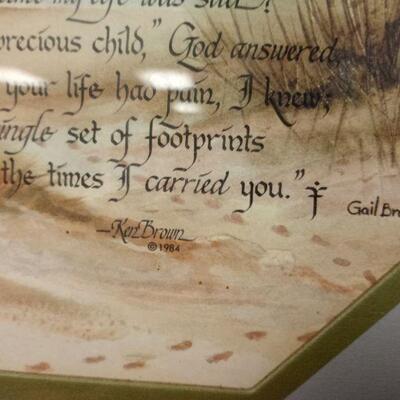 my life was sad?
precious child," God answered,
your life had pain, I knew;
single set of footprints
the times I carried you."
Gail Br
—Ken Brown
©1984